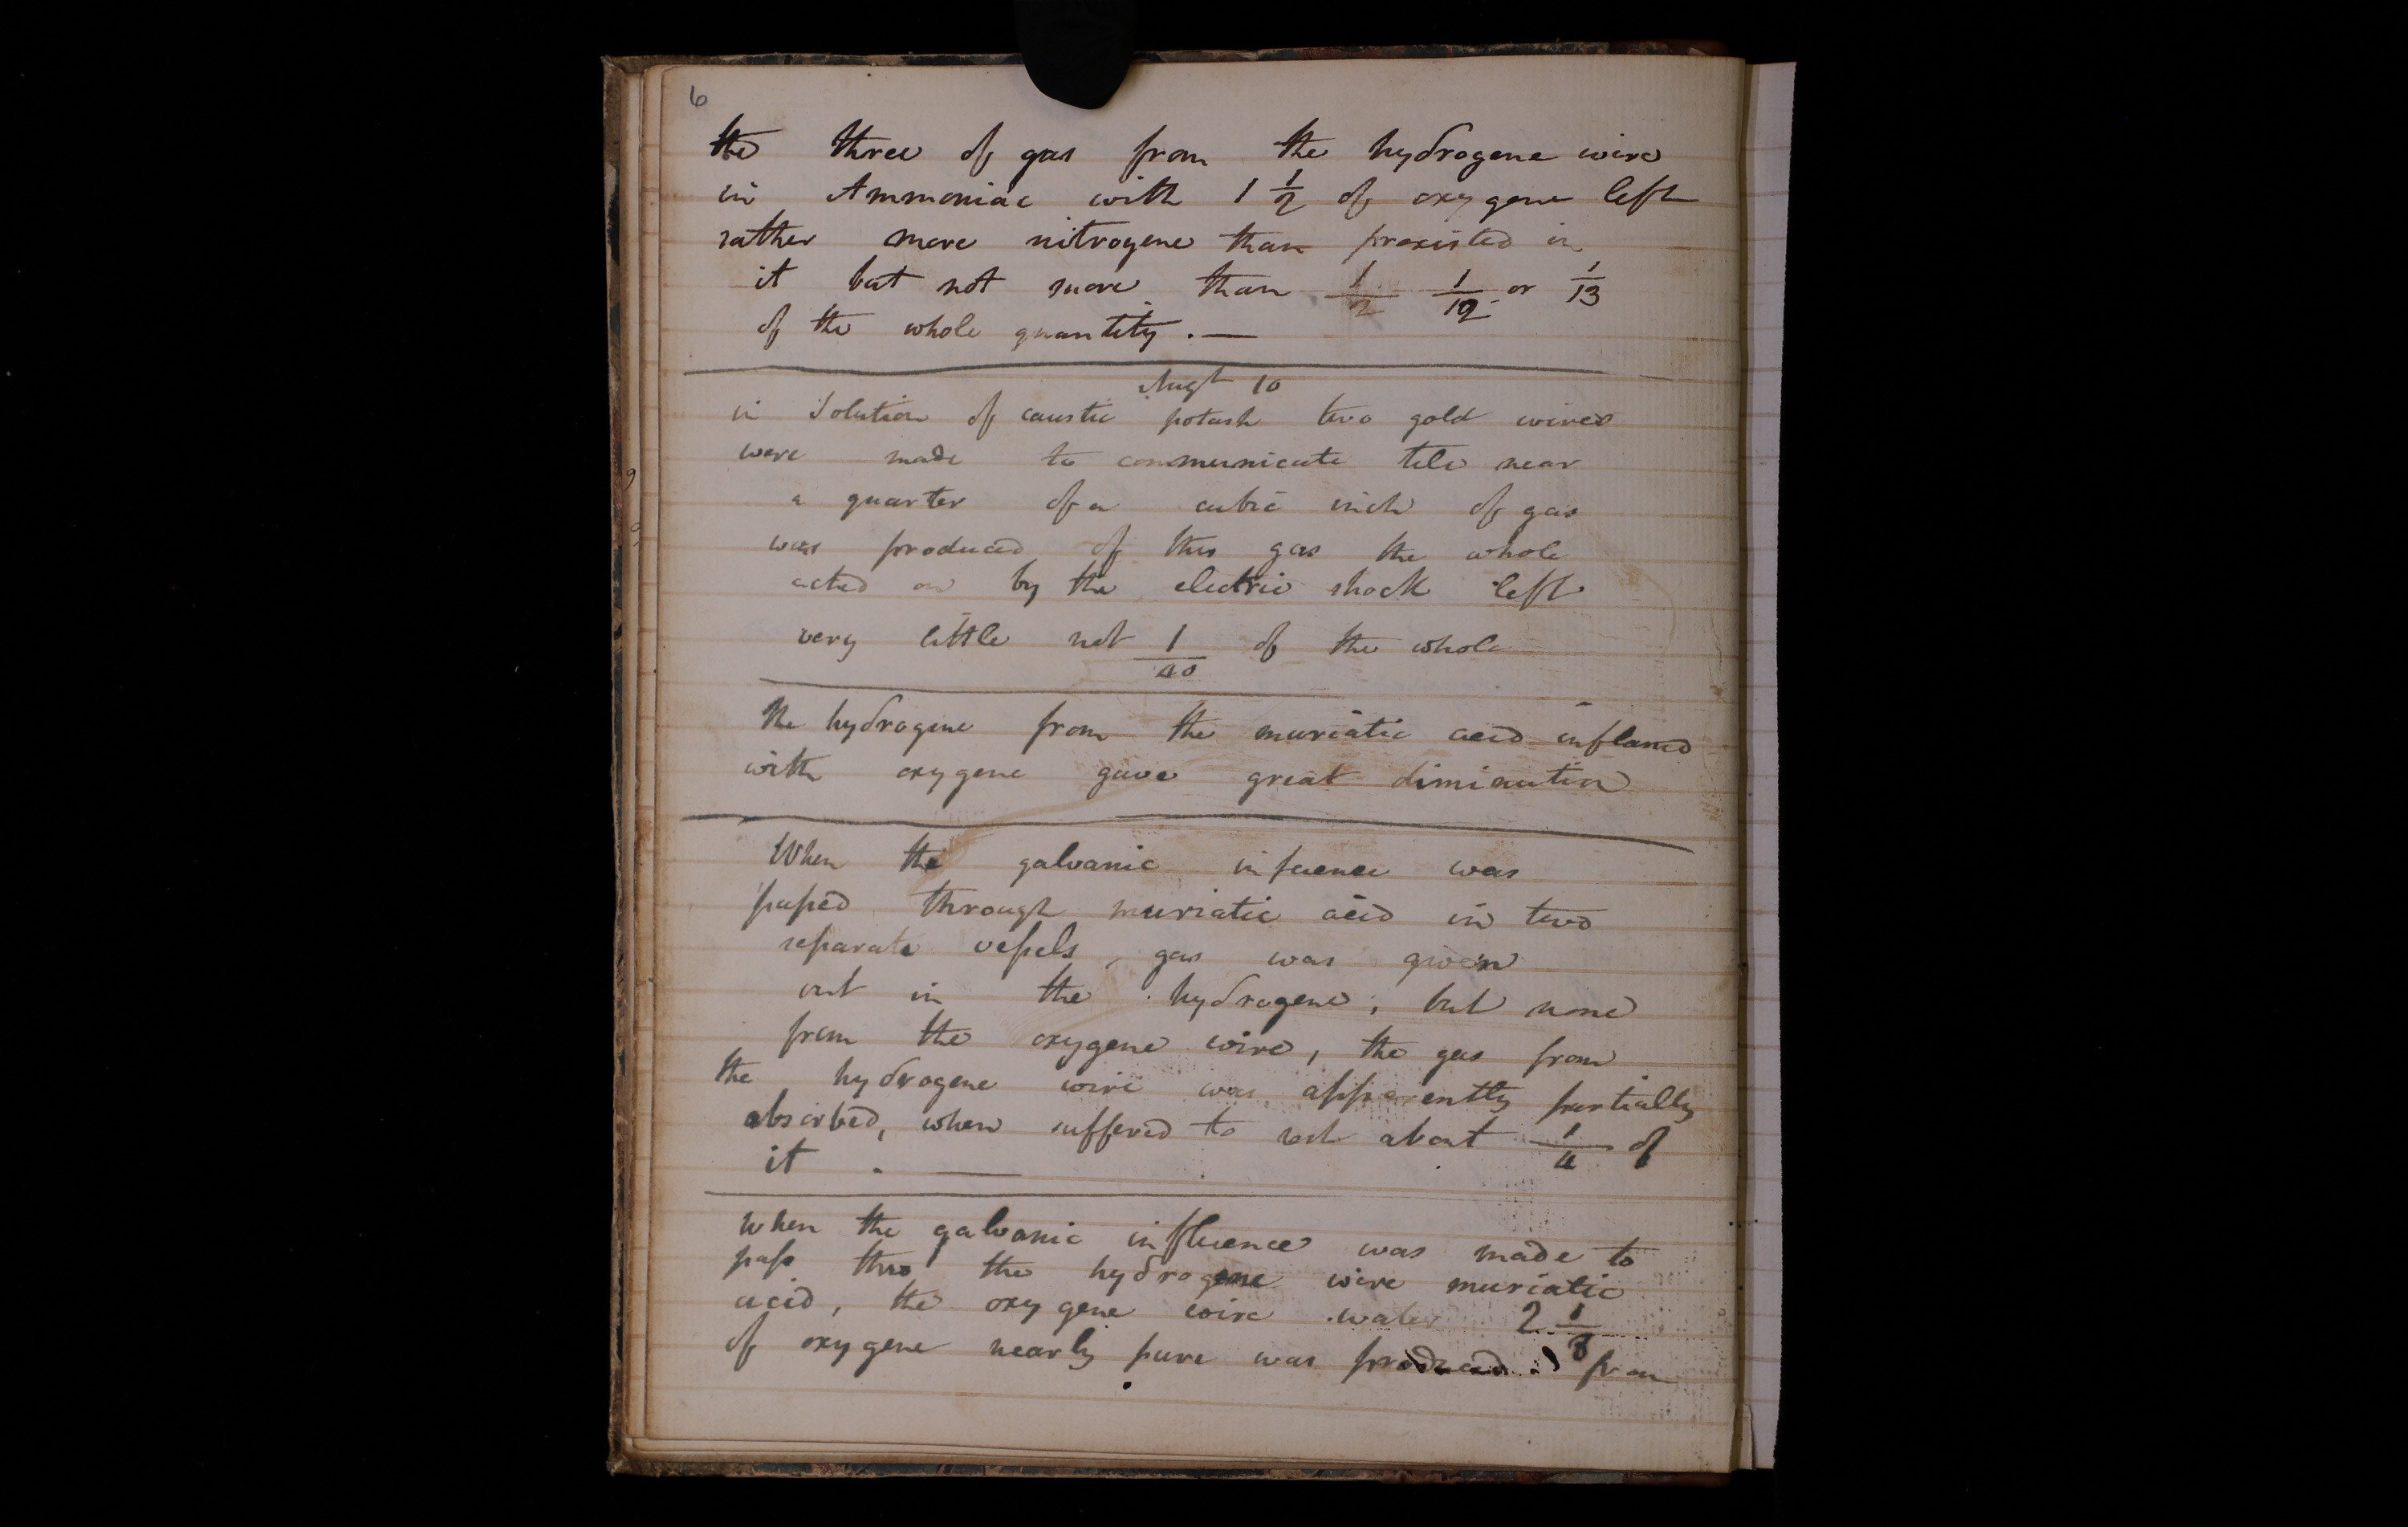 6
the three of gas from the hydrogene wire
in Ammoniac with 1 1/2 of oxygene left
rather more nitrogene than prexisted in
it but not more than 1/2 1/12 or 1/13
of the whole quantity . —
Augt 10
in Solution of caustic potash two gold wires
were made to communicate till near
a quarter of a cubic inch of gas
was produced of this gas the whole
acted on by the electric shock left
very little not 1/40 of the whole
the hydrogene from the muriatic acid inflamed
with oxygene gave great diminution
When the galvanic infuence was
passed through muriatic acid in two
separate vessels, gas was given
out in the hydrogene; but none
from the oxygene wire, the gas from
the hydrogene wire was apparently partially
absorbed, when suffered to rest about 1/4 of
it . —
When the galvanic influence was made to
pass thro the hydrogene wire muriatic
acid, the oxygene wire water 2 1/8
of oxygene nearly pure was produced. from